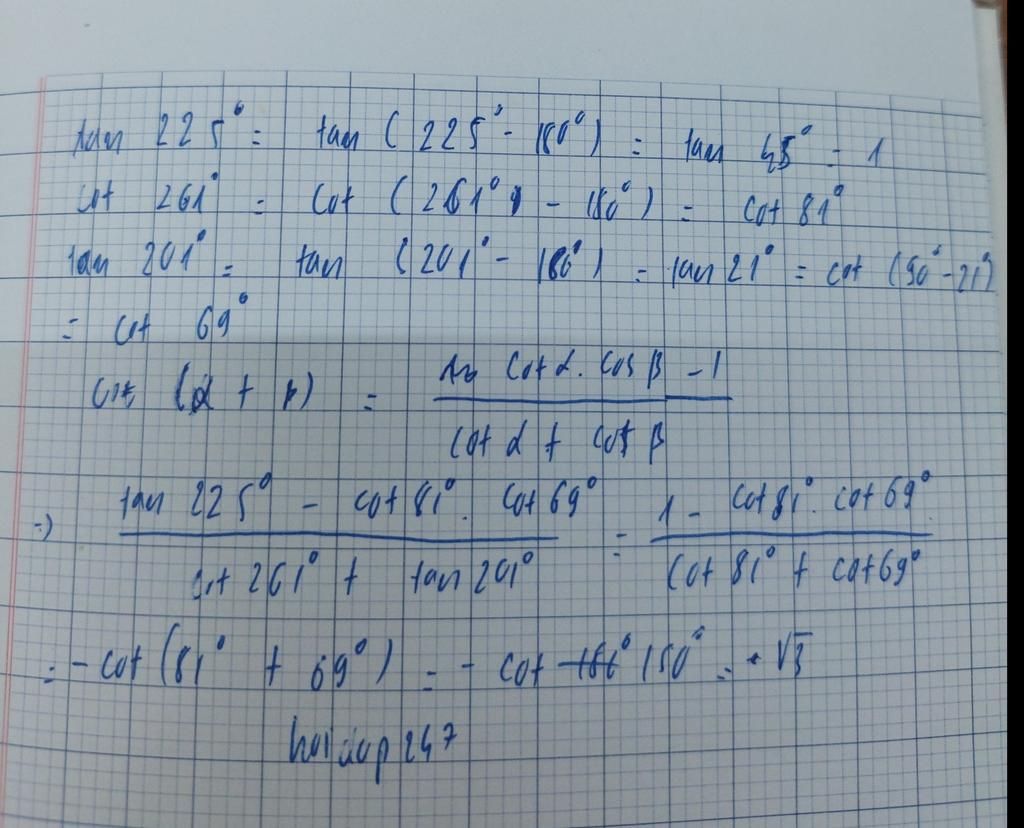 tan 225° = tan (225° - 180°) = tan 45° = 1
cot 261° = cot (261° - 180°) = cot 81°
tan 201° = tan (201° - 180°) = tan 21° = cot (90° - 21°)
= cot 69°
cot (α + β) = \frac{cot α. cos β - 1}{cot α + cot β}
=) \frac{tan 225° - cot 81°. cot 69°}{cot 261° + tan 201°} = \frac{1 - cot 81°. cot 69°}{cot 81° + cot 69°}
= - cot (81° + 69°) = - cot 150° = √3
hoidap247